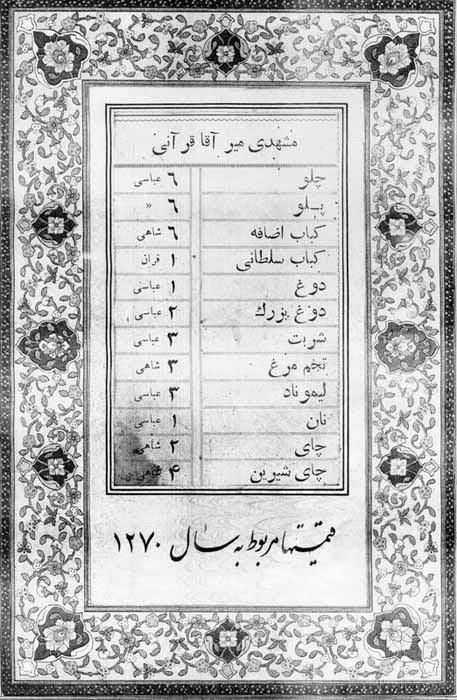 مشهدی میر آقا قرآنی
چلو ۶ عباسی
پلو ۶ »
کباب اضافه ۶ شاهی
کباب سلطانی ۱ قران
دوغ ۱ عباسی
دوغ بزرك ۲ عباسی
شربت ۳ عباسی
تخم مرغ ۳ شاهی
لیمو ناد ۳ عباسی
نان ۱ عباسی
چای ۲ شاهی
چای شیرین ۴ شاهی
قیمتها مربوط به سال ۱۲۷۰